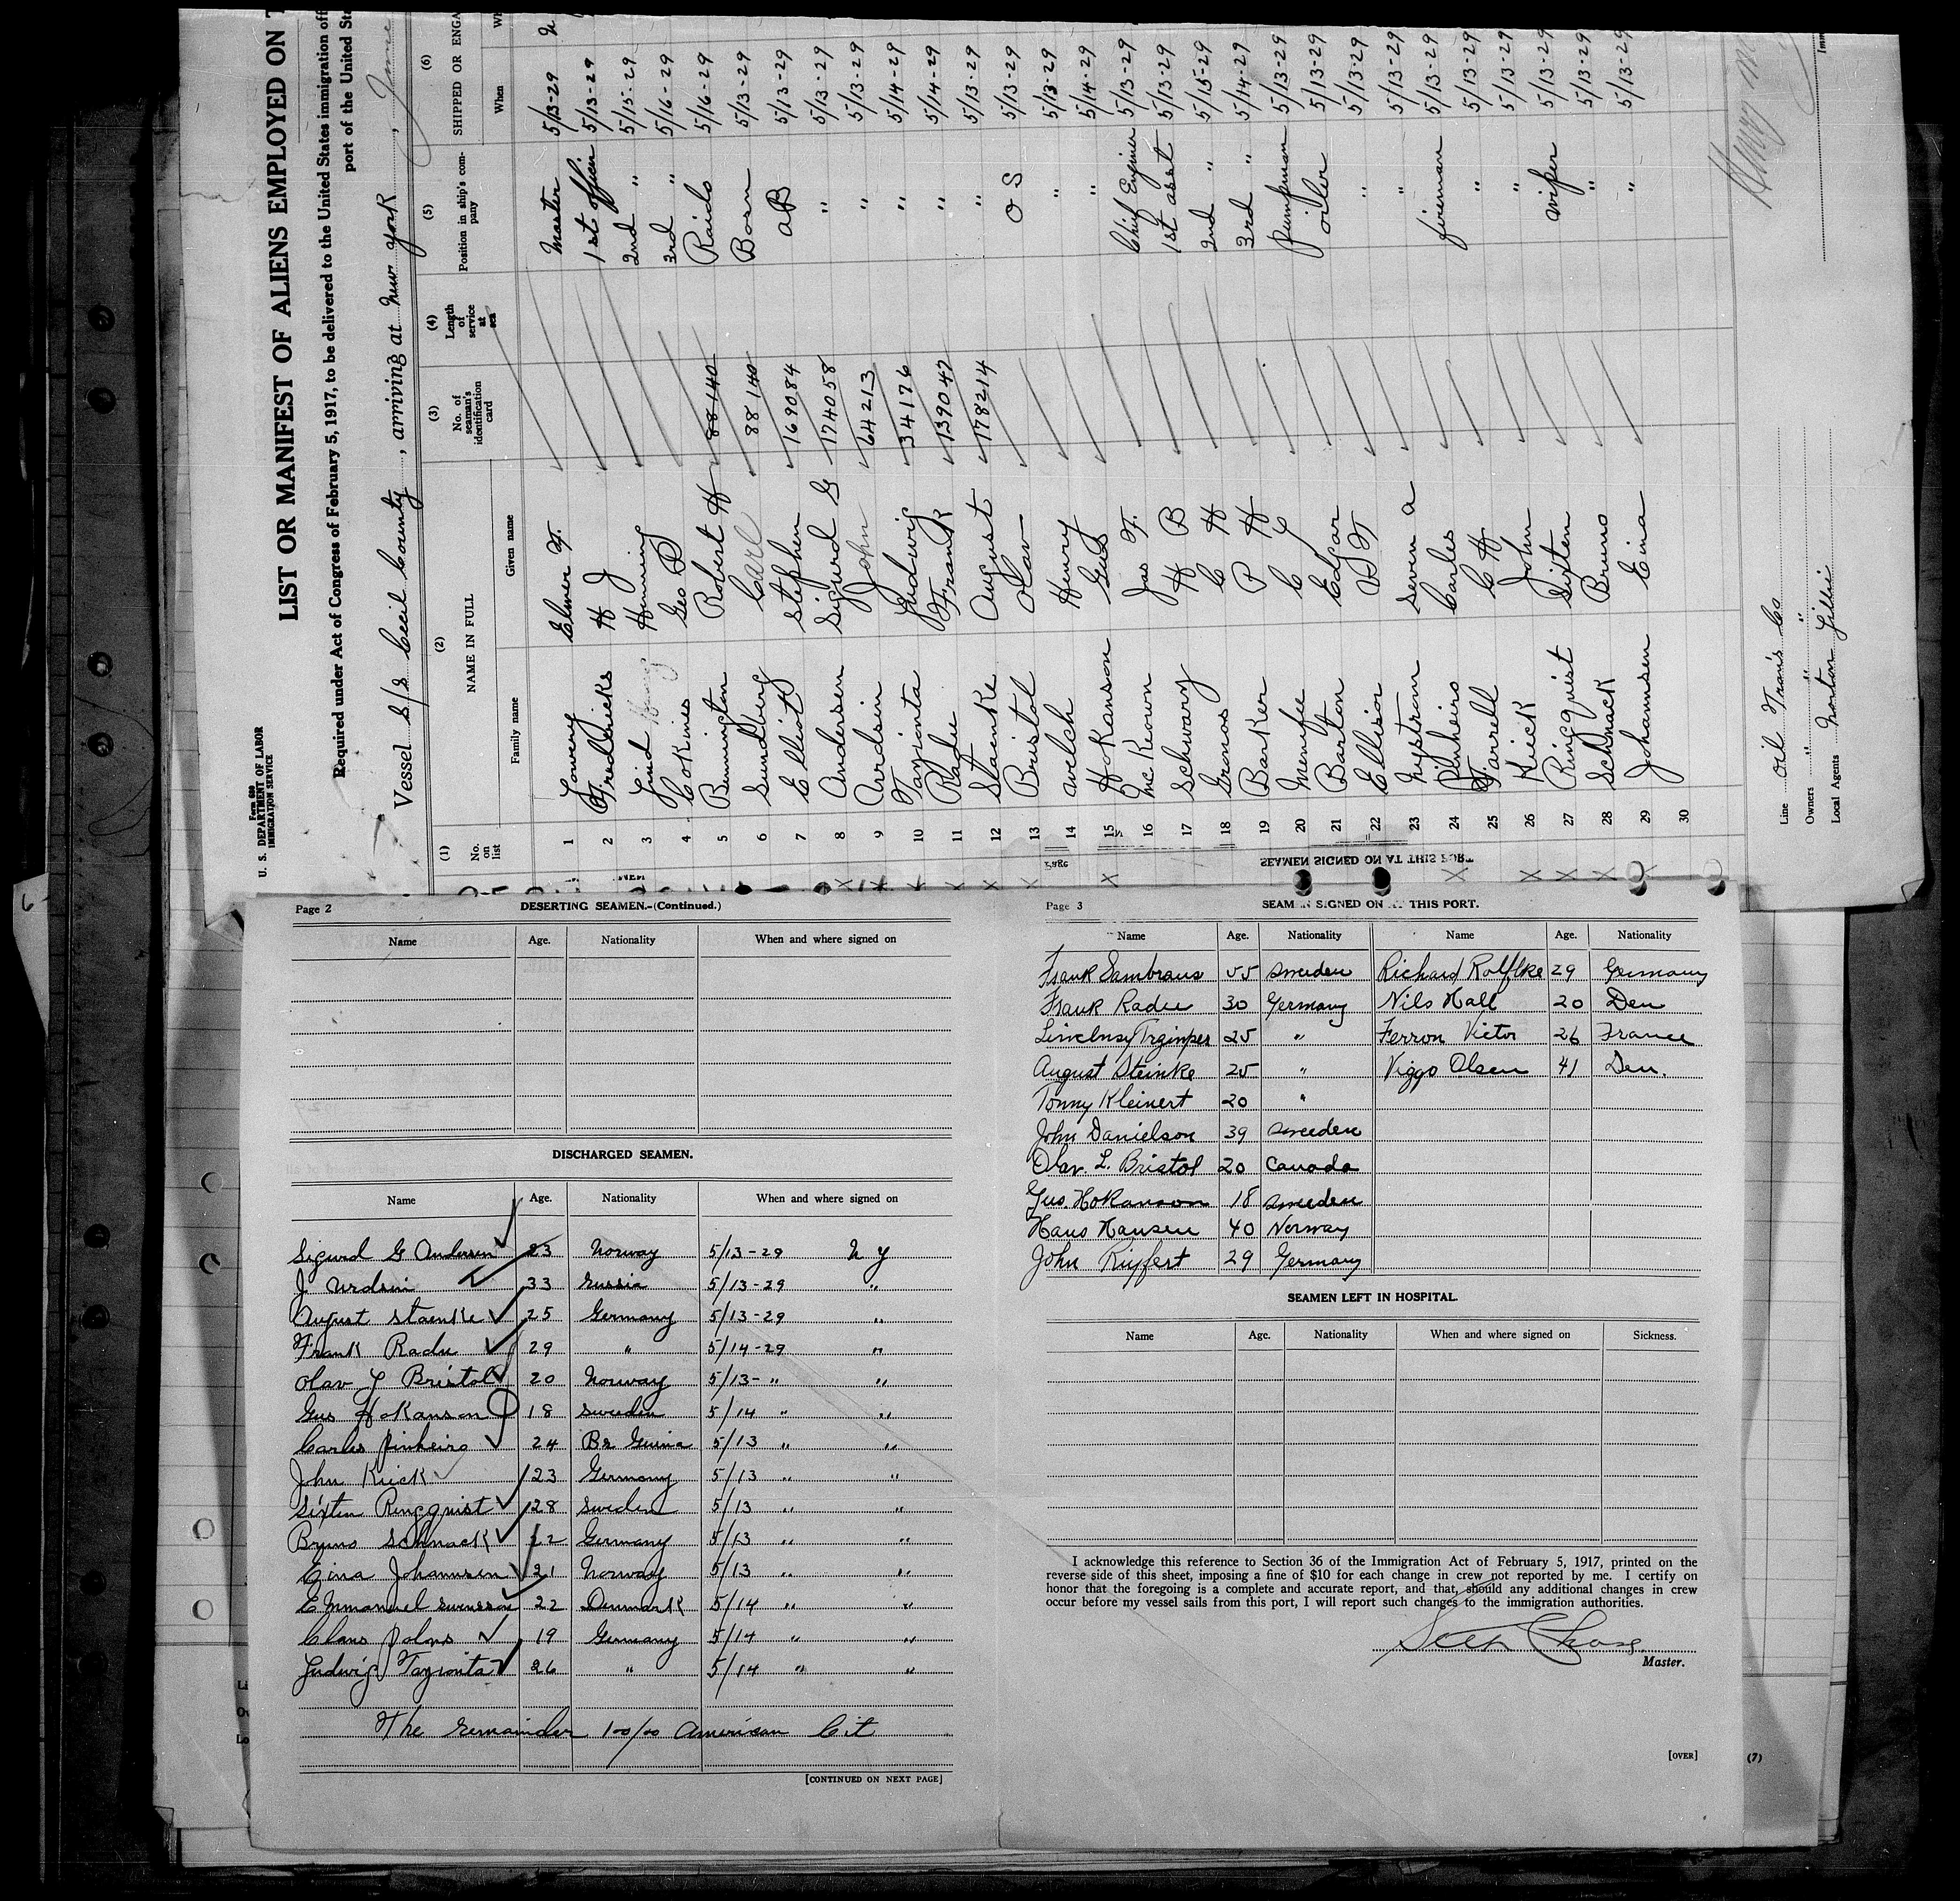 Form 680
U. S. DEPARTMENT OF LABOR
IMMIGRATION SERVICE
LIST OR MANIFEST OF ALIENS EMPLOYED ON
Required under Act of Congress of February 5, 1917, to be delivered to the United States immigration
port of the United
Vessel S/S Cecil County, arriving at New York, June
(1) (2) (3) (4) (5) (6)
No. on list NAME IN FULL No. of seaman's identification card Length of service at sea Position in ship's company SHIPPED OR ENGA
Family name Given name When
1 Lowery Elmer F. Master 5/13-29
2 Fredericks H J 1st officer 5/13-29
3 Lind Henning 2nd " 5/15-29
4 Cokines Geo D 3rd " 5/16-29
5 Bennington Robert H 88140 Raido 5/16-29
6 Sundberg Carl 88140 Bosn 5/13-29
7 Elliott Stephen 169084 AB 5/13-29
8 Andersen Sigurd G 174058 " 5/13-29
9 Ardsin John 64213 " 5/13-29
10 Tayronta Ludwig 34176 " 5/14-29
11 Radu Frank 139047 " 5/14-29
12 Staenke August 178214 " 5/13-29
13 Bristol Olav O S 5/13-29
14 Avelch Henry " 5/13-29
15 Hokanson Gus " 5/14-29
16 McKeown Jas F. Chief Engineer 5/13-29
17 Schwary H B 1st asst 5/13-29
18 Gronos C H 2nd " 5/15-29
19 Barker P H 3rd " 5/14-29
20 Menefee C C pumpman 5/13-29
21 Barton Edgar oiler 5/13-29
22 Ellison D F " 5/13-29
23 Nystrom Seven A " 5/13-29
24 Pinheiro Carles fireman 5/13-29
25 Farrell C H " 5/13-29
26 Krick John " 5/13-29
27 Ringquist Sixten wiper 5/13-29
28 Schnack Bruno " 5/13-29
29 Johannsen Eina " 5/13-29
30
Line Oil Trans Co
Owners " " "
Local Agents Norton Lilli
SEAMEN SIGNED ON AT THIS PORT
Page 2
DESERTING SEAMEN.-(Continued.)
Name Age. Nationality When and where signed on
DISCHARGED SEAMEN.
Name Age. Nationality When and where signed on
Sigurd G Andersen 23 Norway 5/13-29 N Y
J Ardsin 33 Russia 5/13-29 "
August Staenke 25 Germany 5/13-29 "
Frank Radu 29 " 5/14-29 "
Olav L Bristol 20 Norway 5/13- " "
Gus Hokanson 18 Sweden 5/14 " "
Carles Pinheiro 24 Br Guina 5/13 " "
John Krick 23 Germany 5/13 " "
Sixten Ringquist 28 Sweden 5/13 " "
Bruno Schnack 22 Germany 5/13 " "
Eina Johannsen 21 Norway 5/13 " "
Emmanuel Swensson 22 Denmark 5/14 " "
Claus 19 Germany 5/14 " "
Ludwig Tayronta 26 " 5/14 " "
The remainder 100/00 American Cit
[CONTINUED ON NEXT PAGE]
Page 3
SEAMEN SIGNED ON AT THIS PORT.
Name Age. Nationality Name Age. Nationality
Frank Sambraus 55 Sweeden Richard Rolfske 29 Germany
Frank Radu 30 Germany Nils Hall 20 Den
25 " Ferron Victor 26 France
August Steinke 25 " Viggo Olsen 41 Den.
Tonny Kleinert 20 "
John Danielson 39 Sweeden
Olav. L. Bristol 20 Canada
Gus. Hokanson 18 Sweeden
Hans Hansen 40 Norway
John 29 Germany
SEAMEN LEFT IN HOSPITAL.
Name Age. Nationality When and where signed on Sickness.
I acknowledge this reference to Section 36 of the Immigration Act of February 5, 1917, printed on the
reverse side of this sheet, imposing a fine of $10 for each change in crew not reported by me. I certify on
honor that the foregoing is a complete and accurate report, and that, should any additional changes in crew
occur before my vessel sails from this port, I will report such changes to the immigration authorities.
Seth Chase
Master.
[OVER]
(7)